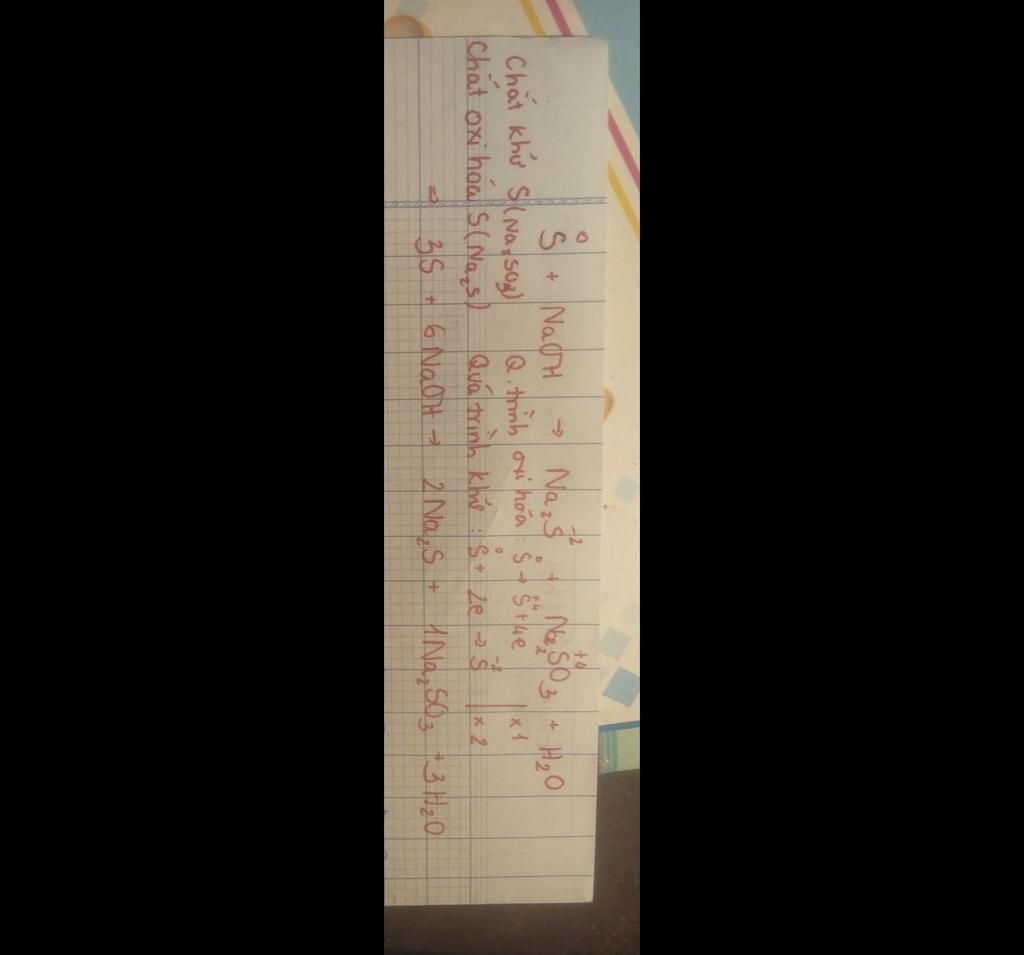 0
S + NaOH → Na₂S⁻² + Na₂S⁺⁴O₃ + H₂O
Chất khử S(Na₂SO₃) Q.trình oxi hóa : S⁰ → S⁺⁴ + 4e | x 1
Chất oxi hóa S(Na₂S) Quá trình khử : S⁰ + 2e → S⁻² | x 2
⇒ 3S + 6NaOH → 2Na₂S + 1Na₂SO₃ + 3H₂O